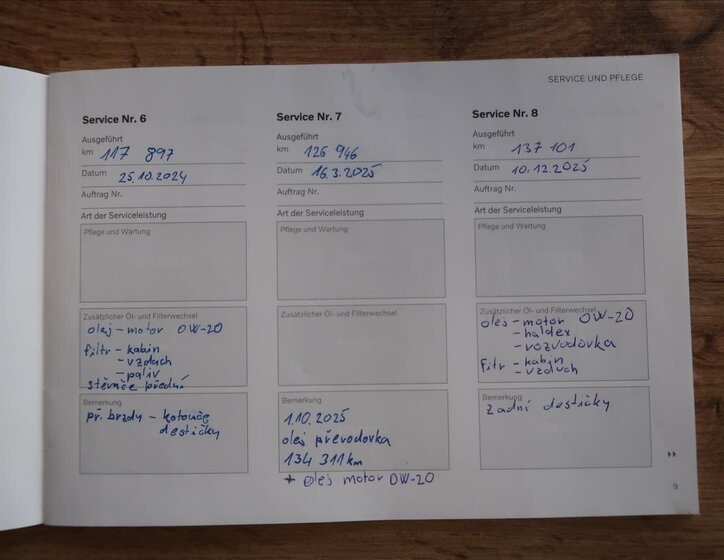 SERVICE UND PFLEGE
Service Nr. 6
Ausgeführt
km 117 897
Datum 25.10.2024
Auftrag Nr.
Art der Serviceleistung
Pflege und Wartung
Zusätzlicher Öl- und Filterwechsel
olej - motor 0W-20
filtr - kabin
- vzdach
- paliv
stěrače přední
Bemerkung
př. brzdy - kotouče
destičky
Service Nr. 7
Ausgeführt
km 126 946
Datum 16.3.2025
Auftrag Nr.
Art der Serviceleistung
Pflege und Wartung
Zusätzlicher Öl- und Filterwechsel
Bemerkung
1.10.2025
olej převodovka
134 311 km
+ olej motor 0W-20
Service Nr. 8
Ausgeführt
km 137 101
Datum 10.12.2025
Auftrag Nr.
Art der Serviceleistung
Pflege und Wartung
Zusätzlicher Öl- und Filterwechsel
olej - motor 0W-20
- haldex
- rozvodovka
filtr - kabin
- vzduch
Bemerkung
zadní destičky
9